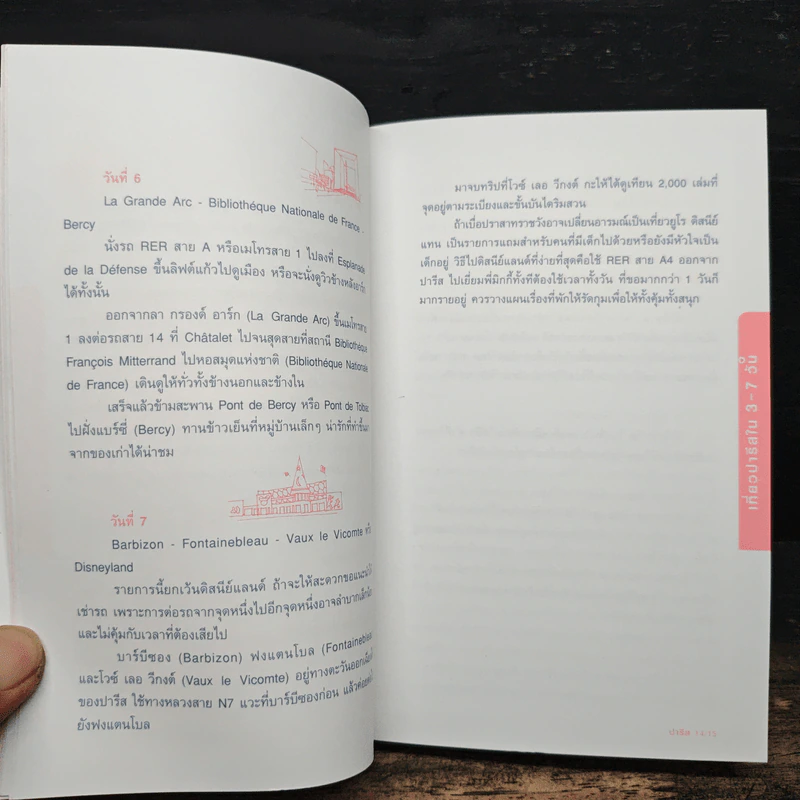 วันที่ 6
La Grande Arc - Bibliothéque Nationale de France -
Bercy
นั่งรถ RER สาย A หรือเมโทรสาย 1 ไปลงที่ Esplanade
de la Défense ขึ้นลิฟต์แก้วไปดูเมือง หรือจะนั่งดูวิวข้างหลังอาร์ก
ได้ทั้งนั้น
ออกจากลา กรองด์ อาร์ก (La Grande Arc) ขึ้นเมโทรสาย
1 ลงต่อรถสาย 14 ที่ Châtalet ไปจนสุดสายที่สถานี Bibliothéque
François Mitterrand ไปหอสมุดแห่งชาติ (Bibliothéque Nationale
de France) เดินดูให้ทั่วทั้งข้างนอกและข้างใน
เสร็จแล้วข้ามสะพาน Pont de Bercy หรือ Pont de Tolbiac
ไปฝั่งแบร์ซี่ (Bercy) ทานข้าวเย็นที่หมู่บ้านเล็กๆ น่ารักที่ทำขึ้นมา
จากของเก่าได้น่าชม
วันที่ 7
Barbizon - Fontainebleau - Vaux le Vicomte หรือ
Disneyland
รายการนี้ยกเว้นดิสนีย์แลนด์ ถ้าจะให้สะดวกขอแนะนำให้
เช่ารถ เพราะการต่อรถจากจุดหนึ่งไปอีกจุดหนึ่งอาจลำบากเล็กน้อย
และไม่คุ้มกับเวลาที่ต้องเสียไป
บาร์บีซอง (Barbizon) ฟงแตนโบล (Fontainebleau)
และโวซ์ เลอ วีกงต์ (Vaux le Vicomte) อยู่ทางตะวันออกเฉียงใต้
ของปารีส ใช้ทางหลวงสาย N7 แวะที่บาร์บีซองก่อน แล้วค่อย
ยังฟงแตนโบล
มาจบทริปที่โวซ์ เลอ วีกงต์ กะให้ได้ดูเทียน 2,000 เล่มที่
จุดอยู่ตามระเบียงและขั้นบันไดริมสวน
ถ้าเบื่อปราสาทราชวังอาจเปลี่ยนอารมณ์เป็นเที่ยวยูโร ดิสนีย์
แทน เป็นรายการแถมสำหรับคนที่มีเด็กไปด้วยหรือยังมีหัวใจเป็น
เด็กอยู่ วิธีไปดิสนีย์แลนด์ที่ง่ายที่สุดคือใช้ RER สาย A4 ออกจาก
ปารีส ไปเยี่ยมพี่มิกกี้ทั้งทีต้องใช้เวลาทั้งวัน ที่ขอมากกว่า 1 วันก็
มากรายอยู่ ควรวางแผนเรื่องที่พักให้รัดกุมเพื่อให้ทั้งคุ้มทั้งสนุก
เที่ยวปารีสใน 3 - 7 วัน
ปารีส 14:15